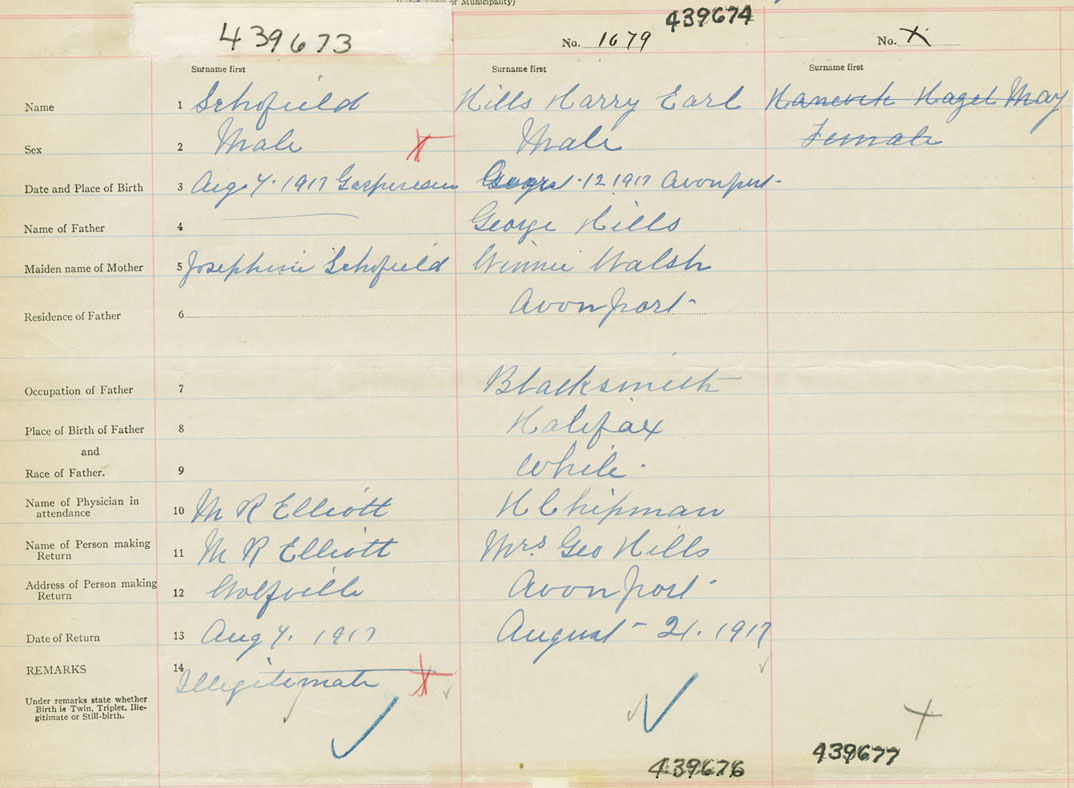 or Municipality)
439673
439674
No. 1679
No. X
Surname first
Surname first
Surname first
Name 1 Schofield Hills Harry Earl Hancock Hazel May
Sex 2 Male Male Female
Date and Place of Birth 3 Aug 7. 1917 Gaspereau 12 1917 Avonport
Name of Father 4 George Hills
Maiden name of Mother 5 Josephine Schofield Winnie Walsh
Residence of Father 6 Avonport
Occupation of Father 7 Blacksmith
Place of Birth of Father 8 Halifax
and
Race of Father. 9 White
Name of Physician in
attendance 10 M R Elliott H Chipman
Name of Person making
Return 11 M R Elliott Mrs. Geo Hills
Address of Person making
Return 12 Wolfville Avonport
Date of Return 13 Aug 7. 1917 August 21. 1917
REMARKS 14 Illegitimate
Under remarks state whether
Birth is Twin, Triplet, Ille-
gitimate or Still-birth.
439676
439677